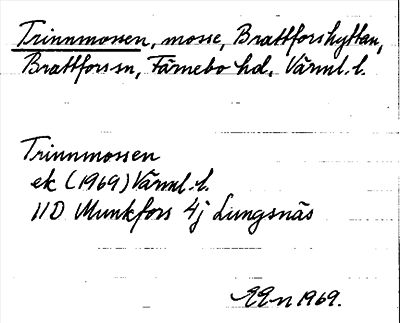 Trinnmossen, mosse, Brattforshyttan,
Brattforssn, Färnebo hd, Värml. l.
Trinnmossen
ek (1969) Värml. l.
11D Munkfors 4j Lungsnäs
EEn 1969.